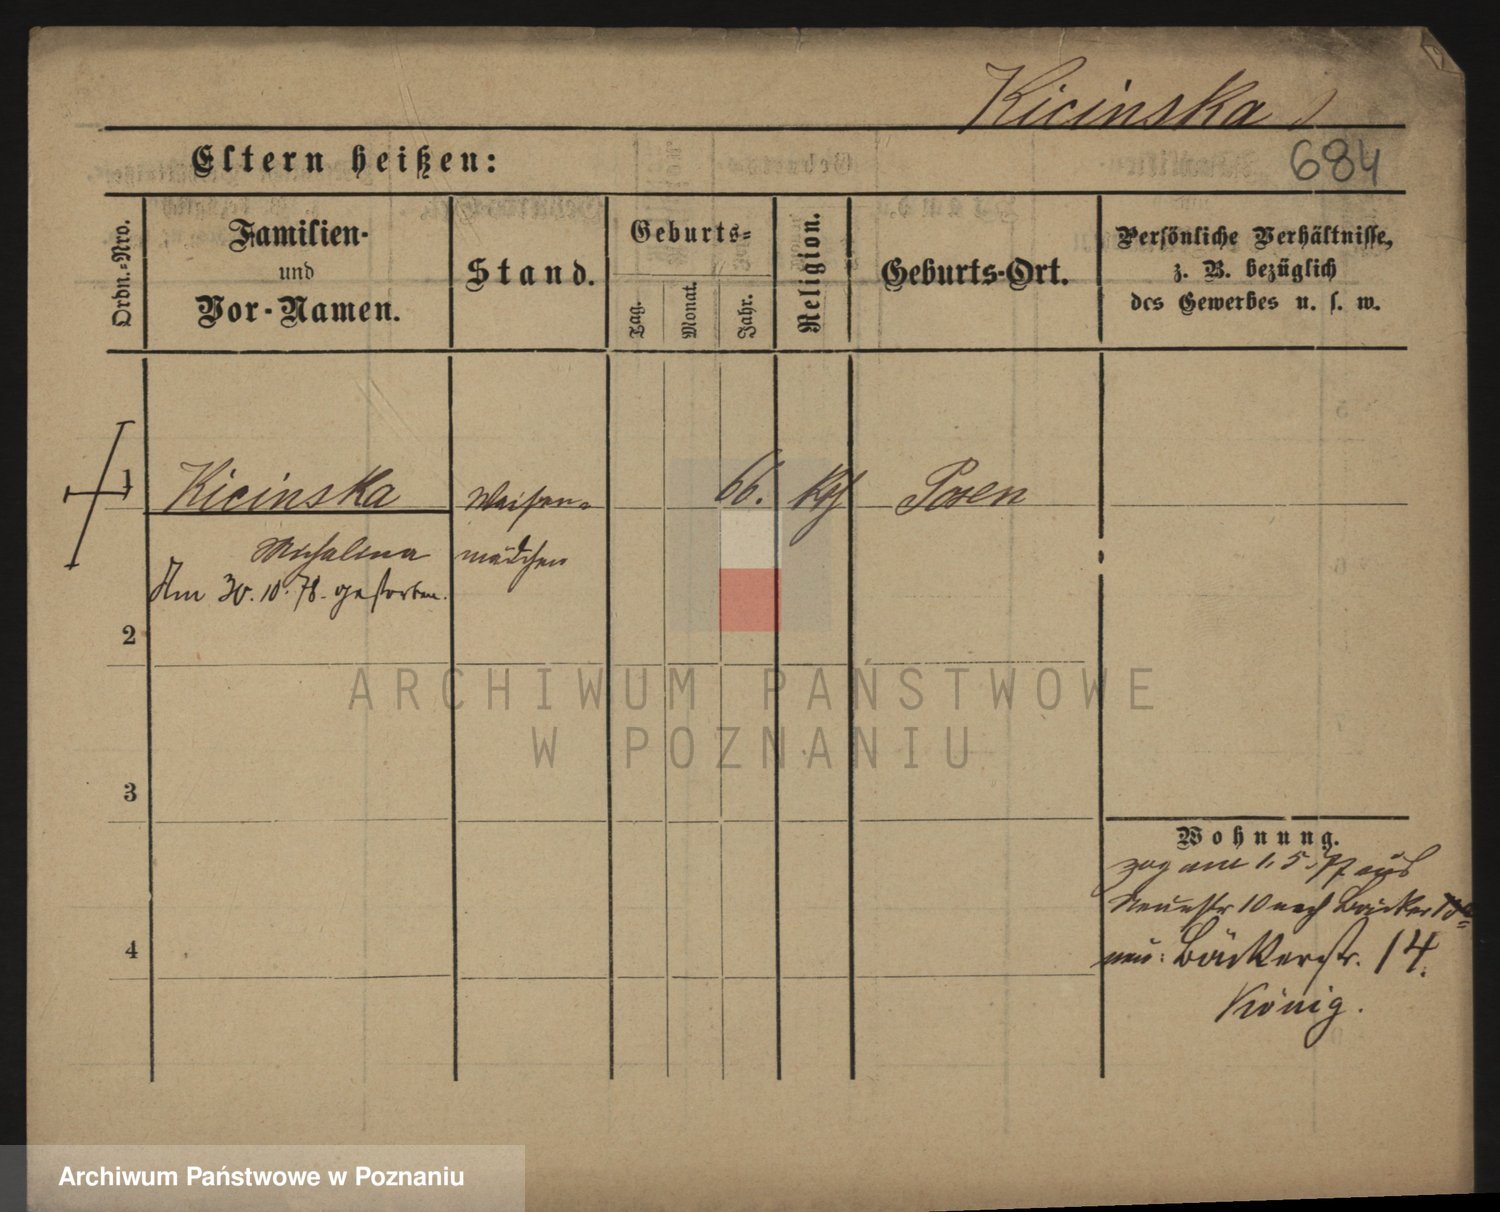 Kicinska
Eltern heißen:
684
Ordn.-Nro.
Familien-
und
Vor-Namen.
Stand.
Geburts-
Tag.
Monat.
Jahr.
Religion.
Geburts-Ort.
Persönliche Verhältnisse,
z. B. bezüglich
des Gewerbes u. s. w.
1
Kicinska
Waisen-
66.
Kth
Posen
Michalina
mädchen
Am 30.10.78. gestorben.
2
ARCHIWUM PAŃSTWOWE
W POZNANIU
3
Wohnung.
zog am 1.5.77 aus
Neuestr 10 nach Bäcker
4
neu: Bäckerstr. 14.
König.
Archiwum Państwowe w Poznaniu